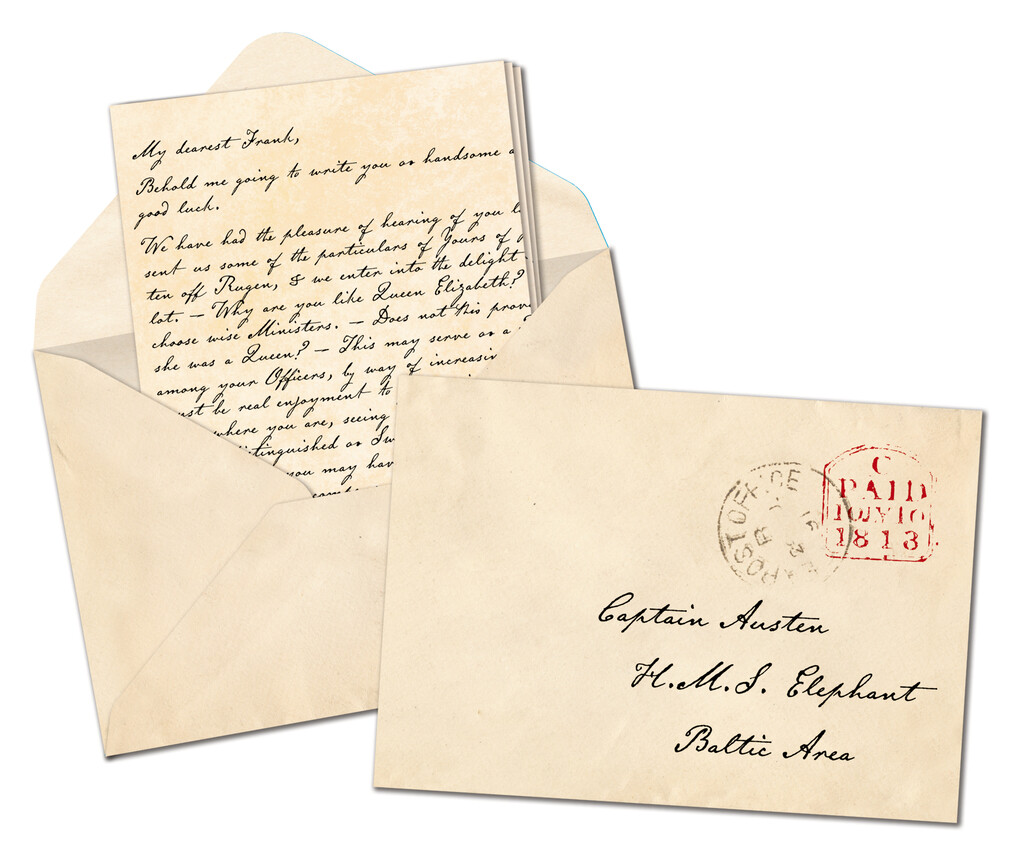 My dearest Frank,
Behold me going to write you as handsome a
good luck.
We have had the pleasure of hearing of you
sent us some of the particulars of Yours of
ten off Rugen, & we enter into the delight
lot. — Why are you like Queen Elizabeth?
choose wise Ministers. — Does not this prov
she was a Queen? — This may serve as a
among your Officers, by way of increasin
ust be real enjoyment to
where you are, seeing
tinguished as Sw
you may hav
POST OFFICE
C
PAID
10 JY 10
1813
Captain Austen
H.M.S. Elephant
Baltic Area